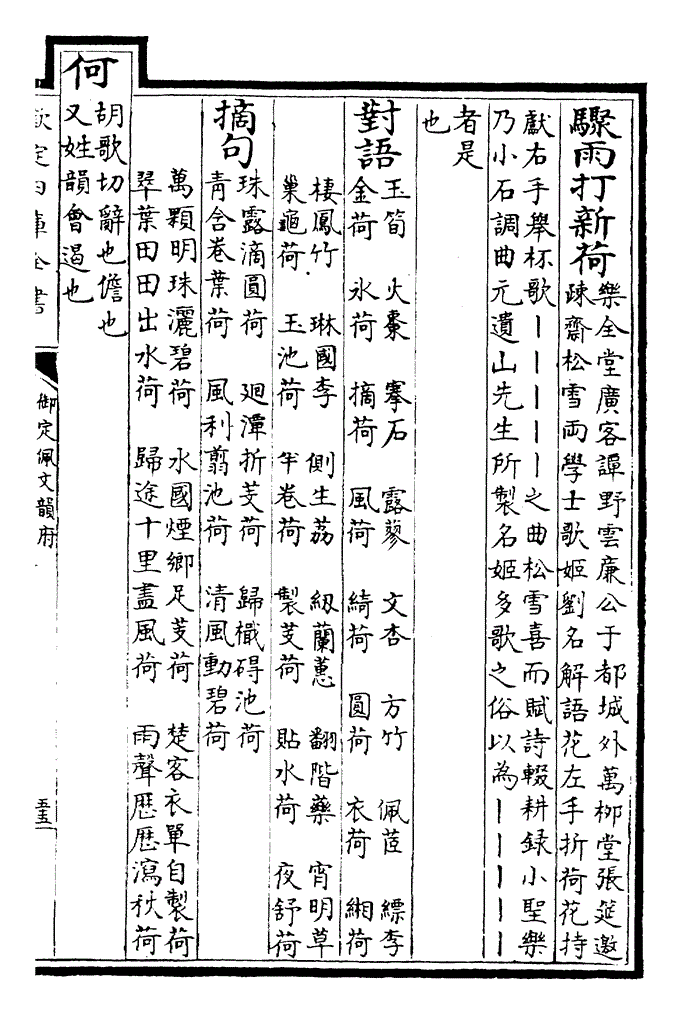 驟雨打新荷
樂全堂廣客譚野雲廉公于都城外萬柳堂張筵邀
疎齋松雪両學士歌姬劉名解語花左手折荷花持
獻右手舉杯歌丨丨丨丨丨之曲松雪喜而賦詩輟耕録小聖樂
乃小石調曲元遺山先生所製名姬多歌之俗以為丨丨丨丨丨
者是
也
對語
玉筍 火棗 搴石 露蓼 文杏 方竹 佩茝 縹李
金荷 氷荷 摘荷 風荷 綺荷 圓荷 衣荷 緗荷
棲鳳竹 琳國李 側生荔 紉蘭蕙 翻階藥 宵明草
巢龜荷 玉池荷 半卷荷 製芰荷 貼水荷 夜舒荷
摘句
珠露滴圓荷 廻潭折芰荷 歸檝碍池荷
青含卷葉荷 風利翦池荷 清風動碧荷
萬顆明珠灑碧荷 水國煙鄉足芰荷 楚客衣單自製荷
翠葉田田出水荷 歸途十里盡風荷 雨聲歴歴瀉秋荷
何
胡歌切辭也儋也
又姓韻會遏也
欽定四庫全書
御定佩文韻府